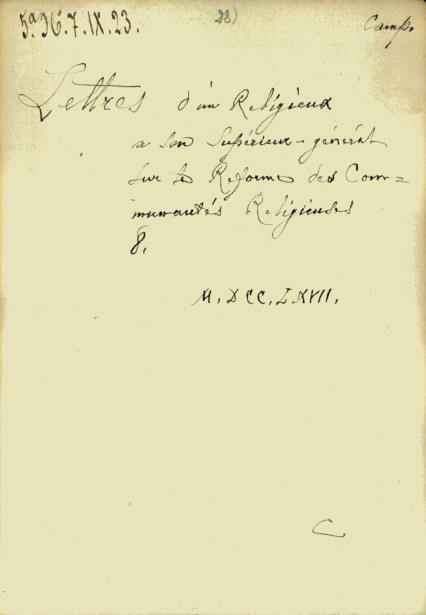 5ª N.7.IX.23.
28)
Camp.
Lettres d'un Religieux
a son Supérieur-général
sur la Reforme des Com=
munautés Religieuses
8.
M.DCC.LXVII.
C